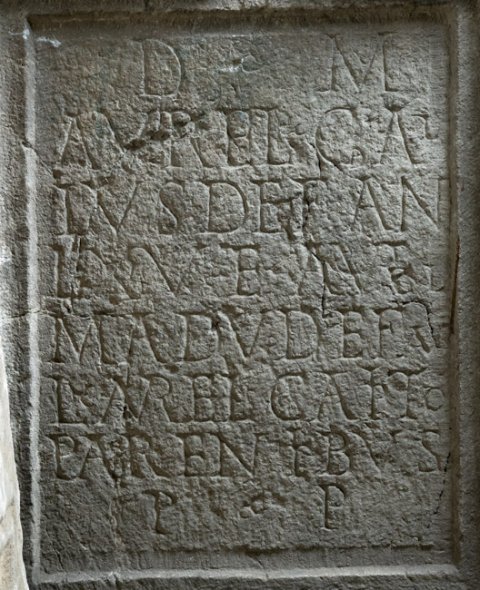 D M
AVREL CA
IVS DEF AN
LXV E
MADV DEF
L AVREL
PARENTIBVS
P P